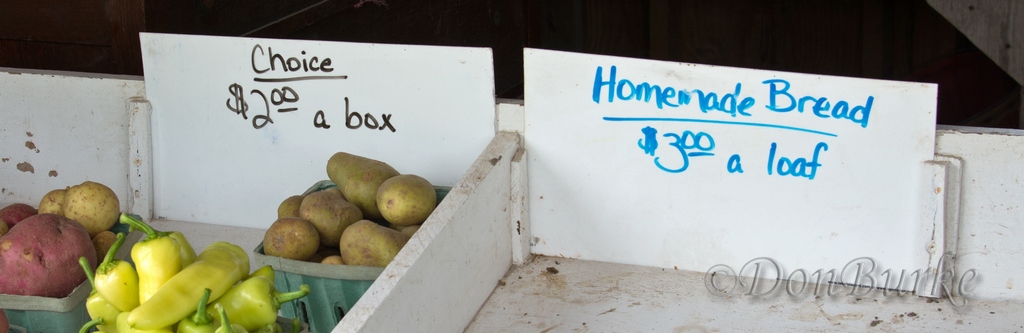 Choice
$2.00 a box
Homemade Bread
$3.00 a loaf
©DonBurke